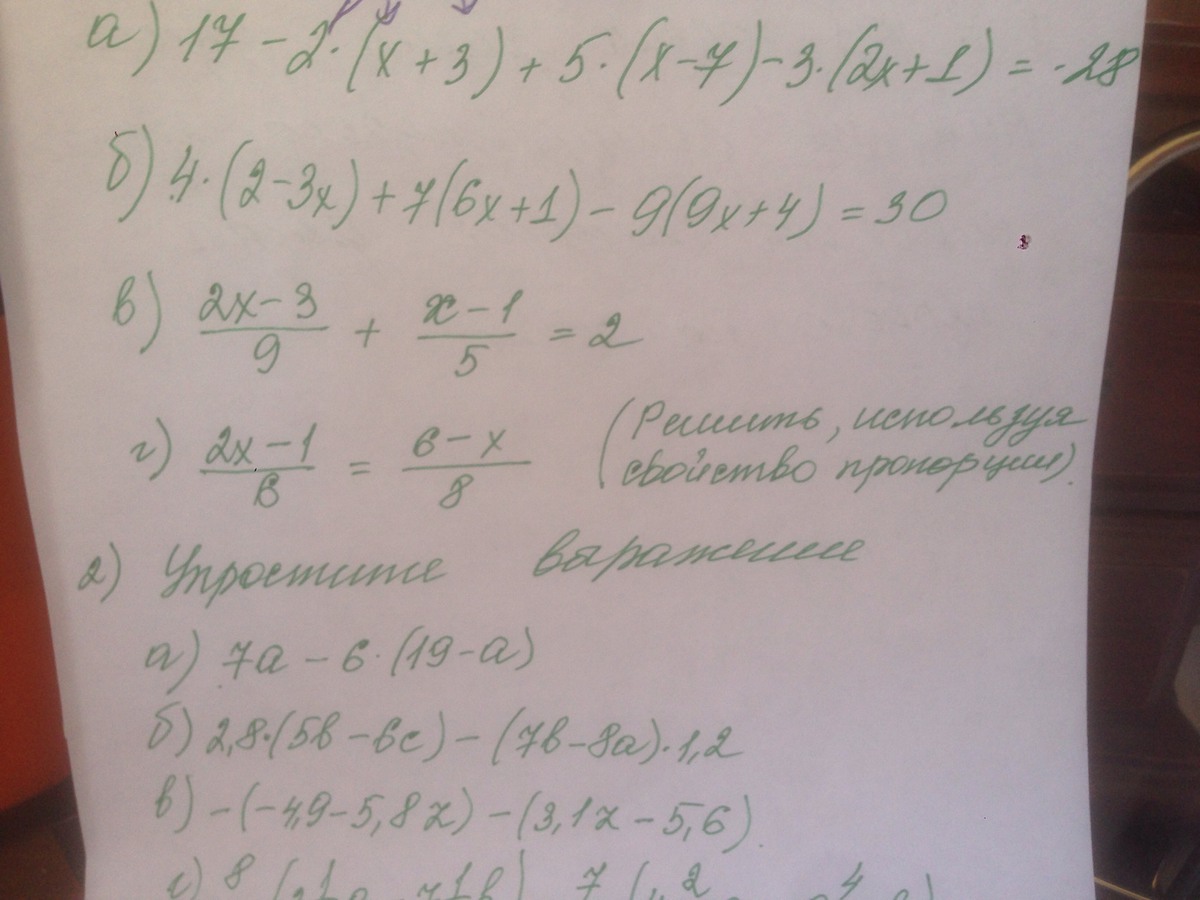 а) 17 - 2·(x + 3) + 5·(x - 7) - 3·(2x + 1) = -28
б) 4·(2 - 3x) + 7(6x + 1) - 9(9x + 4) = 30
в) \frac{2x - 3}{9} + \frac{x - 1}{5} = 2
г) \frac{2x - 1}{6} = \frac{6 - x}{8} (Решить, используя
свойство пропорции).
2) Упростите выражение
а) 7а - 6·(19 - а)
б) 2,8·(5b - 6c) - (7b - 8a)·1,2
в) -(-4,9 - 5,8z) - (3,1z - 5,6)